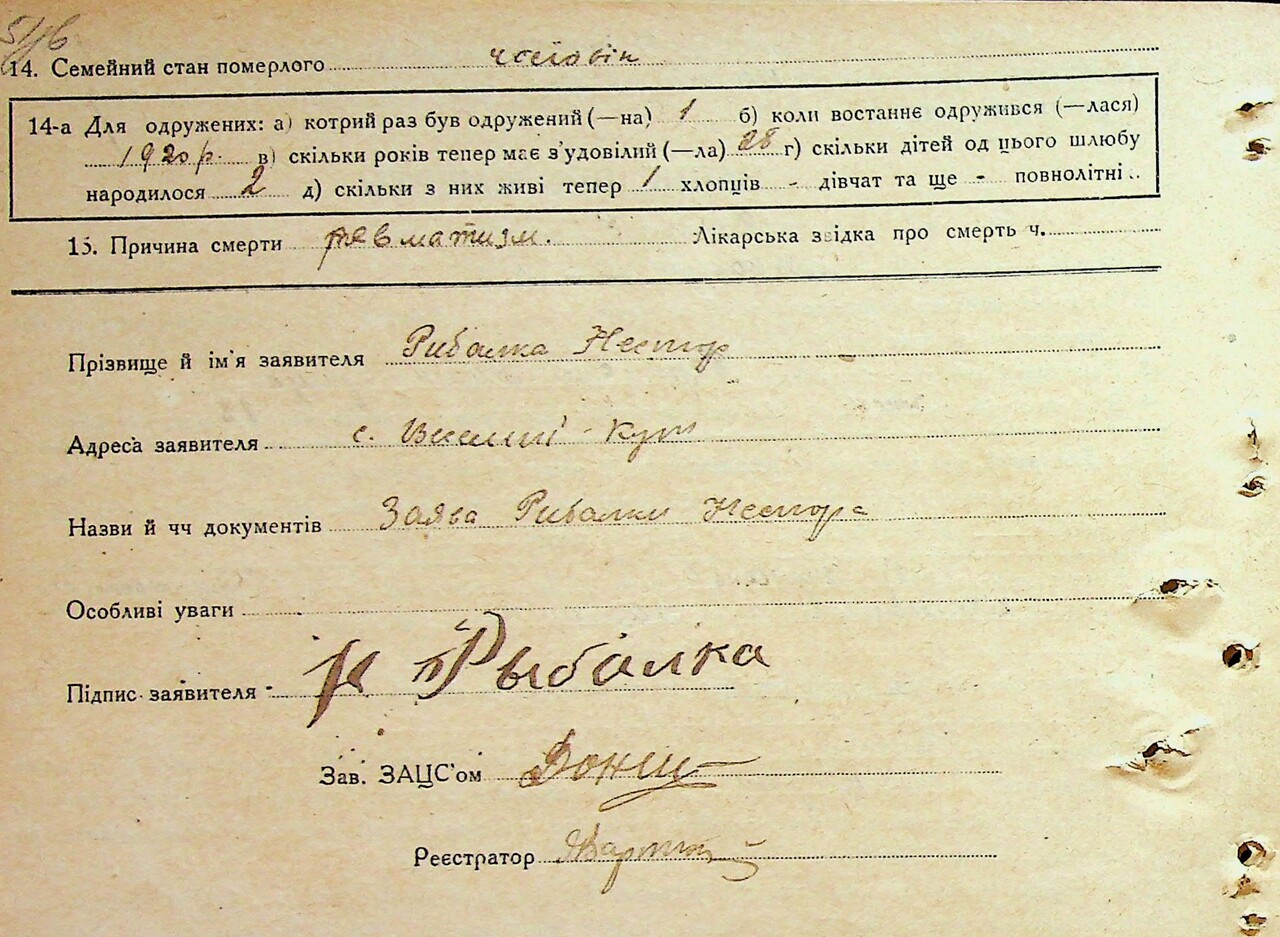 5/16
14. Семейний стан померлого чоловік
14-а Для одружених: а) котрий раз був одружений (—на) 1 б) коли востаннє одружився (—лася)
1920 р. в) скільки років тепер має з'удовілий (—ла) 28 г) скільки дітей од цього шлюбу
народилося 2 д) скільки з них живі тепер 1 хлопців - дівчат та ще - повнолітні..
15. Причина смерти ревматизм. Лікарська звідка про смерть ч.
Прізвище й ім'я заявителя Рибалка Нестор
Адреса заявителя с. Кут
Назви й чч документів Заява Рибалки Нестора
Особливі уваги
Підпис заявителя Рыбалка
Зав. ЗАЦС'ом
Реєстратор